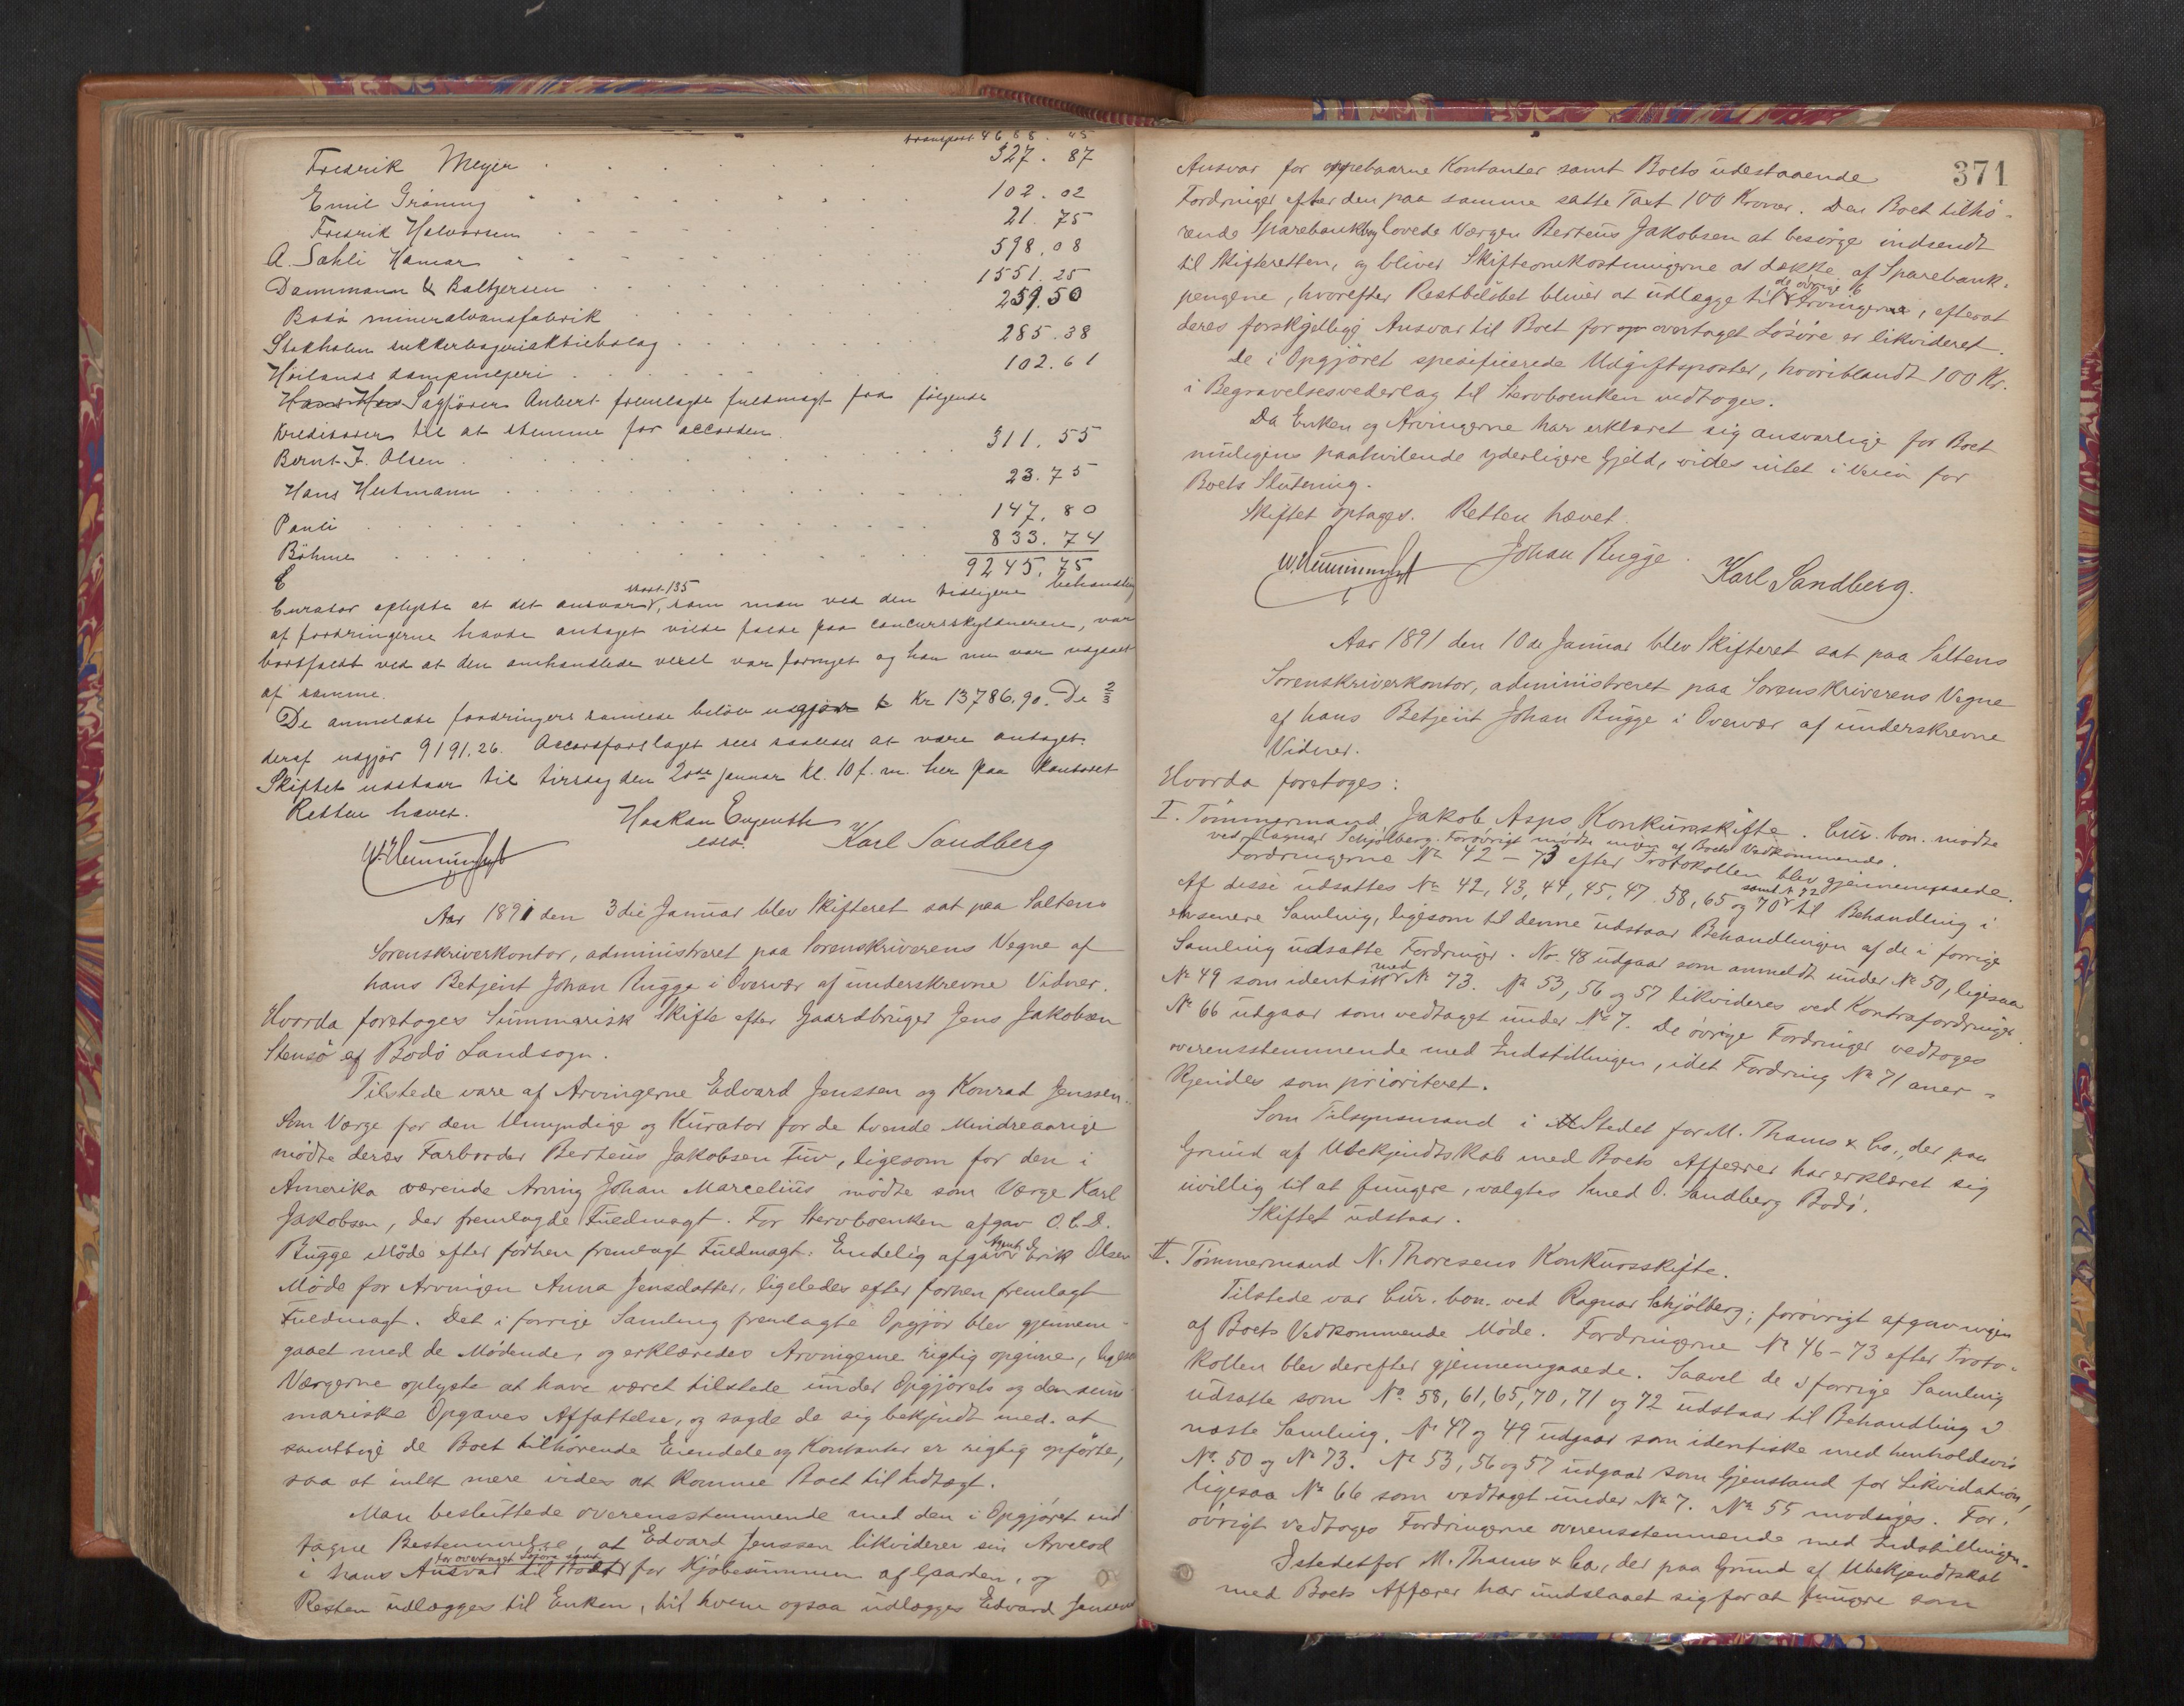 transport. 4668. 45
Fredrik Meyer . . . . . 327. 87
Emil Gröning . . . . . 102. 02
Fredrik Halvorsen . . . . . 21. 75
A. Sahli Hamar . . . . . 598. 08
Dammann & Baltzersen . . . . . 1551. 25
Bodö mineralvansfabrik . . . . . 259. 50
Stokholm sukkerbageriaktiebolag . . . . . 285. 38
Höilands dampmejeri . . . . . 102. 61
Sagförer Aubert fremlagde fuldmagt fra følgende
kreditorer til at stemme for accorden.
Bernt J. Olsen . . . . . 311. 55
Hans Heitmann . . . . . 23. 75
Pauli . . . . . 147. 80
Böhme . . . . . 833. 74
9245. 75
Curator oplyste at det ansvar, stort 135 som man ved den tidligere behandling
af fordringerne havde antaget vilde falde paa concursskyldneren, var
bortfaldt ved at den omhandlede vexel var fornyet og han nu var udgaaet
af samme.
De anmeldte fordringers samlede beløb udgjør Kr 13786.90. De 2/3
deraf udgjør 9191.26. Accordforslaget sees saaledes at være antaget.
Skiftet udstaar til tirsdag den 20de januar Kl. 10 f. m. her paa kontoret
Retten hævet.
Karl Sandberg
Aar 1891 den 3die Januar blev Skifteret sat paa Saltens
Sorenskriverkontor, administreret paa Sorenskriverens Vegne af
hans Betjent Johan Bugge i Overvær af underskrevne Vidner.
Hvorda foretoges Summarisk Skifte efter Gaardbruger Jens Jakobsen
Stensö af Bodö Landsogn.
Tilstede vare af Arvingerne Edvard Jenssen og Konrad Jenssen.
Som Værge for den Umyndige og Kurator for de tvende Mindreaarige
mödte deres Farbroder Berteus Jakobsen Tuv, ligesom for den i
Amerika værende Arving Johan Marcelius mödte som Værge Karl
Jakobsen, der fremlagde Fuldmagt. For Stervboenken afgav O. C. D.
Bugge Möde efter forhen fremlagt Fuldmagt. Endelig afgav Agent Erik Olsen
Möde for Arvingen Anna Jensdatter, ligeledes efter forhen fremlagt
Fuldmagt. Det i forrige Samling fremlagte Opgjör blev gjennem-
gaaet med de Mödende, og erklæredes Arvingerne rigtig opgivne, ligesom
Værgerne oplyste at have været tilstede under Opgjörets og den sum-
mariske Opgaves Affattelse, og sagde de sig bekjendt med at
samtlige de Boet tilhörende Eiendele og Kontanter er rigtig opförte,
saa at intet mere vides at komme Boet til Indtægt.
Man besluttede overensstemmende med den i Opgjöret ind-
tagne Bestemmelse, at Edvard Jenssen likviderer sin Arvelod
i hans Ansvar til Boet for overtaget Lösöre samt for Kjöbesummen af Gaarden, og
Resten udlægges til Enken, til hvem ogsaa udlægges Edvard Jensens
371
Ansvar for oppebaarne Kontanter samt Boets udestaaende
Fordringer efter den paa samme satte Taxt 100 Kroner. Den Boet tilhö-
rende Sparebankbog lovede Værgen Berteus Jakobsen at besörge indsendt
til Skifteretten, og bliver Skifteomkostningerne at dække af Sparebank-
pengene, hvorefter Restbelöbet bliver at udlægge til de övrige 6 Arvingerne, efterat
deres forskjellige Ansvar til Boet for overtaget Lösöre er likvideret.
De i Opgjöret spesificerede Udgiftsposter, hvoriblandt 100 Kr.
i Begravelsesvederlag til Stervboenken vedtoges.
Da Enken og Arvingerne har erklæret sig ansvarlige for Boet
muligens paahvilende yderligere Gjeld, vides intet i Veien for
Boets Slutning.
Skiftet optages. Retten hævet.
Johan Bugge. Karl Sandberg.
Aar 1891 den 10de Januar blev Skifteret sat paa Saltens
Sorenskriverkontor, administreret paa Sorenskriverens Vegne
af hans Betjent Johan Bugge i Overvær af underskrevne
Vidner.
Hvorda foretoges:
I. Tömmermand Jakob Asps Konkursskifte. Cur. bon. mödte
ved Ragnar Schjölberg. Forövrigt mödte ingen af Boets Vedkommende.
Fordringerne № 42 – 73 efter Protokollen blev gjennemgaaede.
Af disse udsattes № 42, 43, 44, 45, 47. 58, 65 og 70 samt № 72 til Behandling i
en senere Samling, ligesom til denne udstaar Behandlingen af de i forrige
Samling udsatte Fordringer. No. 48 udgaar som anmeldt under № 50, ligesaa
№ 49 som identisk med № 73. № 53, 56 og 57 likvideres ved Kontrafordringer.
№ 66 udgaar som vedtaget under № 7. De övrige Fordringer vedtoges
overensstemmende med Indstillingen, idet Fordring № 71 aner-
kjendes som prioriteret.
Som Tilsynsmand i Stedet for M. Thams & Co., der paa
Grund af Ubekjendtskab med Boets Affærer har erklæret sig
uvillig til at fungere, valgtes Smed O. Sandberg Bodö.
Skiftet udstaar.
II. Tömmermand N. Thoresens Konkursskifte.
Tilstede var Cur. bon. ved Ragnar Schjölberg; forövrigt afgav ingen
af Boets Vedkommende Möde. Fordringerne № 46 – 73 efter Proto-
kollen blev derefter gjennemgaaede. Saavel de i forrige Samling
udsatte som № 58, 61, 65, 70, 71 og 72 udstaar til Behandling i
næste Samling. № 47 og 49 udgaar som identiske med henholdsvis
№ 50 og № 73. № 53, 56 og 57 udgaar som Gjenstand for Likvidation,
ligesaa № 66 som vedtaget under № 7. № 55 modsiges. For-
övrigt vedtoges Fordringerne overensstemmende med Indstillingen.
Istedetfor M. Thams & Co, der paa Grund af Ubekjendtskab
med Boets Affærer har undslaaet sig for at fungere som